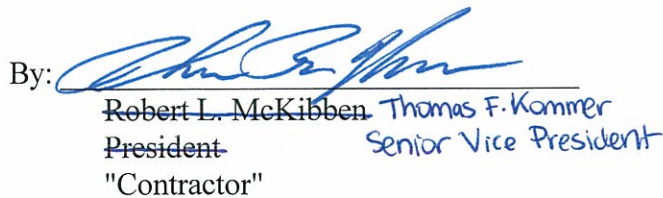 By:
Robert L. McKibben Thomas F. Kommer
President Senior Vice President
"Contractor"